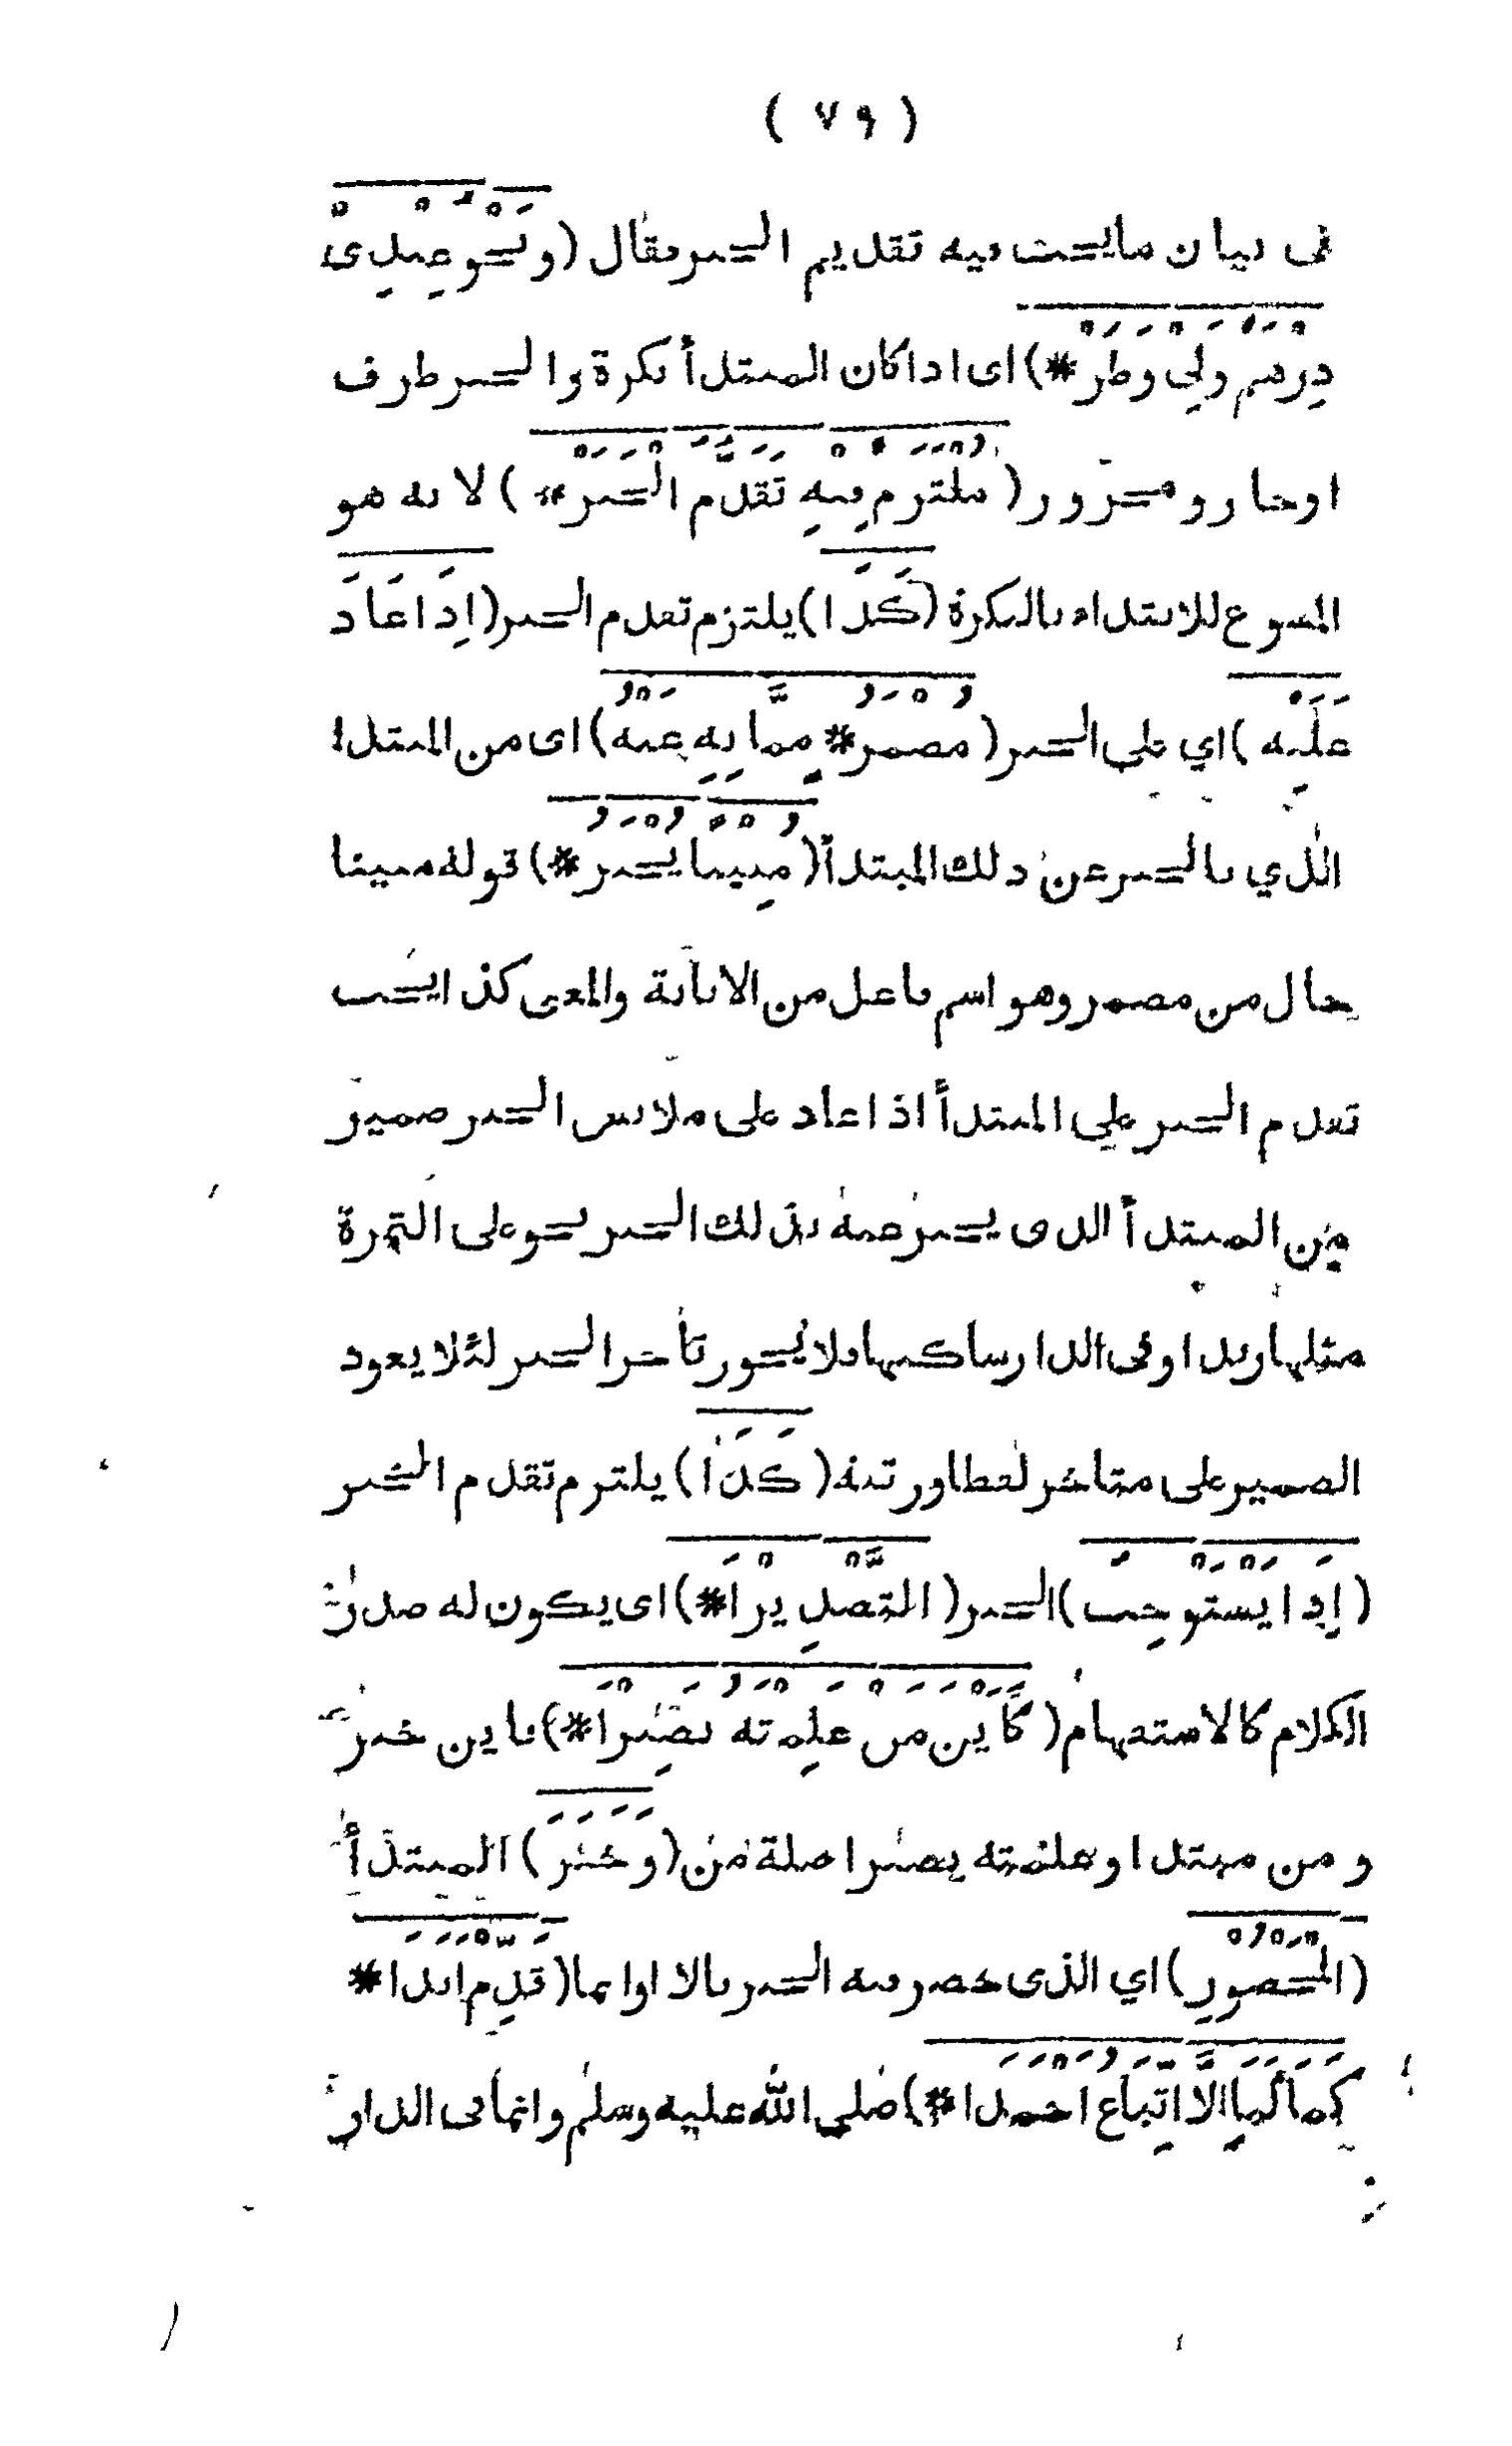 ( ٧٩ )
فى بيان مايجب فيه تقديم الخبر فقال (ونَحْو عِنْدِىْ
دِرْهَمٌ ولِي وَطَرْ *) اى اذا كان المبتدأ نكرة والخبر ظرف
اوجار ومجرور ( مُلْتَزَمٌ فِيهِ تَقَدُّمُ الْخَبَرْ * ) لانه هو
المسوغ للابتداء بالنكرة (كَذَا) يلتزم تقدم الخبر (إِذَا عَادَ
عَلَيْهِ ) اي علي الخبر ( مُضْمَرُ * مِمَّا بِهِ عَنْهُ) اى من المبتدا
الذي بالخبر عن ذلك المبتدأ ( مُبِيناً يُخْبَرُ *) قوله مبينا
حال من مضمر وهو اسم فاعل من الابانة والمعنى كذا يجب
تقدم الخبر علي المبتدأ اذا عاد على ملابس الخبر ضمير
من المبتدأ الذى يخبر عنه بذلك الخبر نحو على التمرة
مثلها زبدا وفى الدار ساكنها فلا يجوز تأخر الخبر لئلا يعود
الضمير على متأخر لفظا ورتبة ( كَذَا ) يلتزم تقدم الخبر
( إِذَا يَسْتَوْجِبُ ) الخبر ( التَّصْدِيْرَا *) اى يكون له صدر
الكلام كالاستفهام ( كَأَيْنَ مَنْ عَلِمْتُهُ نَصِيْرَا *) فاين خبر
و من مبتدا وعلمته نصيرا صلة من ( وَخَبَرَ ) المبتدأ
( الْمَحْصُورِ ) اي الذى حصر فيه الخبر بالا او انما ( قَدِّمْ أَبَدَا *
كَمَا لَنَا إِلَّا اتِّبَاعُ أَحْمَدَا *) صلي الله عليه وسلم وانما فى الدار